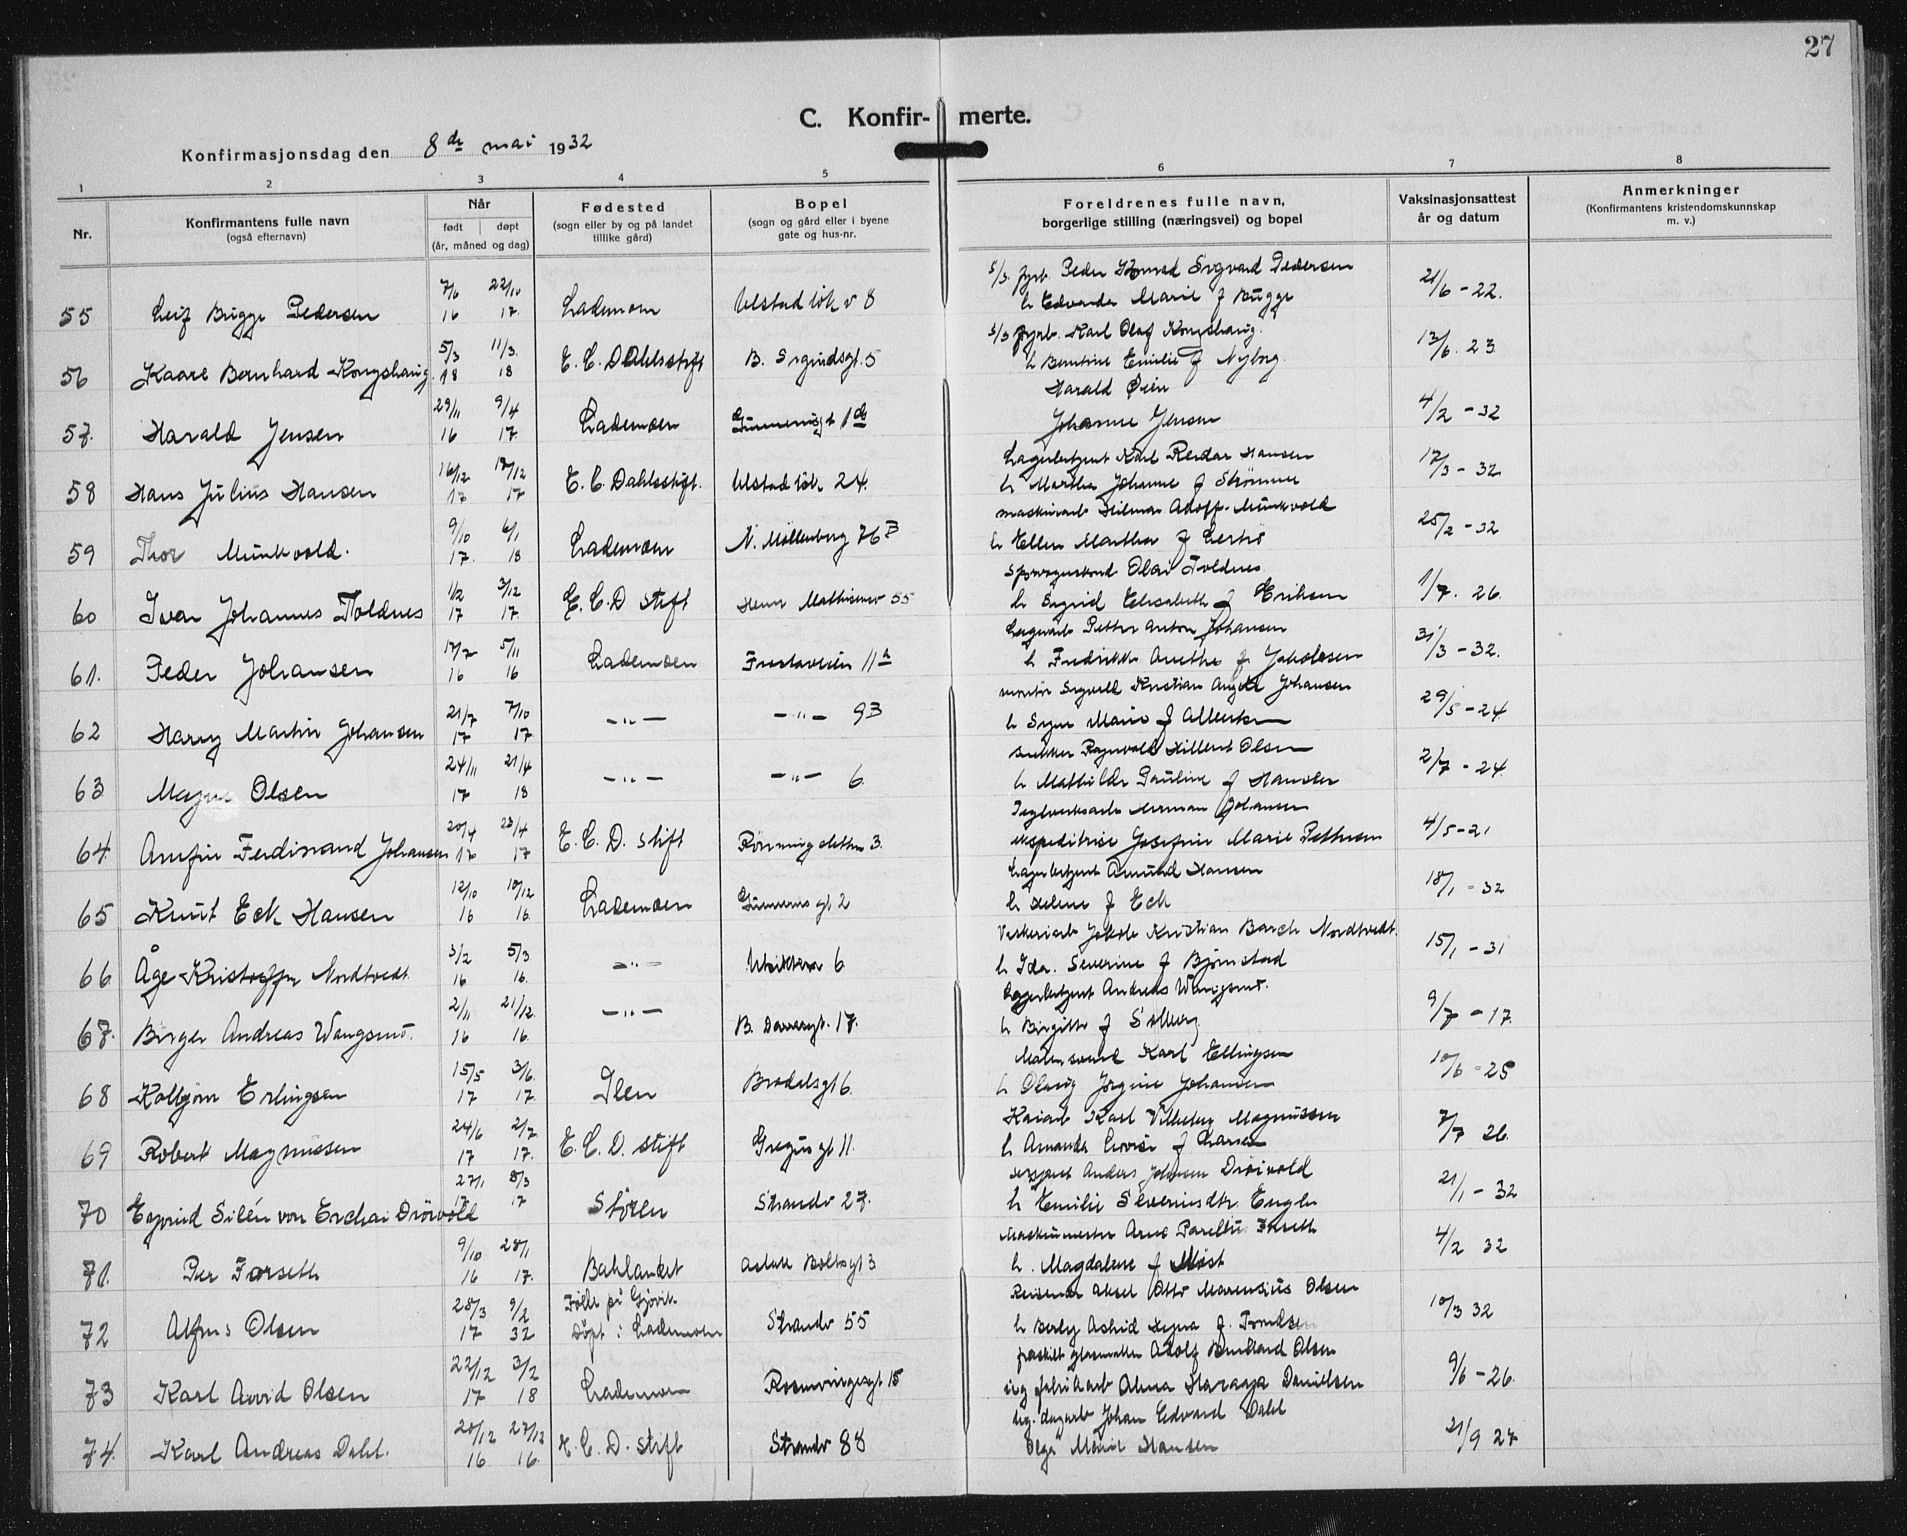 27
C. Konfir- merte.
Konfirmasjonsdag den 8de mai 1932
1 2 3 4 5 6 7 8
Nr.
Konfirmantens fulle navn
(også efternavn)
Når
født døpt
(år, måned og dag)
Fødested
(sogn eller by og på landet
tillike gård)
Bopel
(sogn og gård eller i byene
gate og hus-nr.
Foreldrenes fulle navn,
borgerlige stilling (næringsvei) og bopel
Vaksinasjonsattest
år og datum
Anmerkninger
(Konfirmantens kristendomskunnskap
m. v.)
7/6 22/10 Peder Konrad Sigvard Pedersen
55 Leif Bugge Pedersen 16 17 Lademoen Ulstadløk v 8 h Edvarda Marie f Bugge 21/6 - 22.
5/3 11/3 Karl Olaf Kongshaug
56 Kaare Bernhard Kongshaug 18 18 E. C. Dahlsstift 5 h Berntine Emilie f Nyborg 13/6. 23
29/11 9/4 Harald Øien
57. Harald Jensen 16 17 Lademoen Johanne Jensen 4/2 - 32
16/12 18/12 Lagerbetjent Karl Reidar Hansen
58 Hans Julius Hansen 17 17 E. C. Dahlsstift. Ulstadløk 24. h Martha Johanne f Strømme 17/3 - 32
9/10 6/1 maskinarb Hilmar Adolf Munkvold
59 Thor Munkvold. 17 18 Lademoen N. Möllenberg 76 B h Ellen Martha f 25/2 - 32
1/2 3/12 Olai Toldnes
60 Ivar Johannes Toldnes 17 17. E. C. D stift 55 h Ingrid Elisabeth f Eriksen 1/7. 26.
17/7 5/11 Petter Anton Johansen
61. Peder Johansen 16 16 Lademoen Frostaveien 11a h Fredrikke Anethe f Jakobsen 31/3 - 32.
21/7 7/10 montør Sigvald Kristian Johansen
62 Harry Martin Johansen 17 17 -"- -"- 9B h Signe Marie f 29/5 - 24
24/11 21/4 Ragnvald Hilbert Olsen
63 Magne Olsen 17 18 -"- -"- 6. h Mathilde Pauline f Hansen 2/7 - 24
20/4 23/4 Teglverksarb Herman Johansen
64. Arnfin Ferdinand Johansen 17 17 E. C. D. stift 3. ekspeditrise Josefine Marie Pettersen 4/5 - 21
12/10 10/12 Lagerbetjent Amund Hansen
65 Knut Eck Hansen 16 16. Lademoen Gunnerus gt 2 h Helene f Eck 18/1 - 32
3/2 5/3 Jakob Kristian Barch Nordtvedt.
66 Åge Kristoffer Nordtvedt 16 16. -"- 6 h Ida Severine f Bjørnstad 15/1 - 31
2/11 21/12. Lagerbetjent Andreas Wangsmo.
67. Birger Andreas Wangsmo. 16 16. -"- 17. h Birgitte f Solberg 9/7 - 17.
15/5 3/6. Malersvend Karl Ellingsen
68 Kolbjørn Erlingsen 17 17. Ilen 6. h Jørgine Johansen 10/6 - 25
24/6 2/7 Karl Magnussen
69 Robert Magnussen 17 17. E. C. D. stift Gregus gt 11. h Amanda Lovise f Larsen 7/7 26.
27/1 8/3 Anders Johansen Drøivold
70 Silén von Erchai Drøivold 17 17 Støren Strandv 27. h Emilie Severinsdtr Engen 21/1 - 32
9/10 28/1 Maskinmester Arne
71. Per Forseth 16 17. Baklandet 3 h. Magdalene f Møst 4/2 32
28/3 9/2 Født på Gjøvik Aksel Otto Marensius Olsen
72 Alfons Olsen 17 32 Døpt i Lademoen Strandv 55 h Astrid f. Trondsen 10/3 32
22/12 3/2 Adolf Bernhard Olsen
73 Karl Arvid Olsen 17 18 Lademoen 15 Alma Danielsen 9/6 - 26.
20/12 27/12 Johan Edvard Dahl
74. Karl Andreas Dahl. 16 16. E. C. D. stift Strandv 88 Olga Marie Hansen 21/9 27